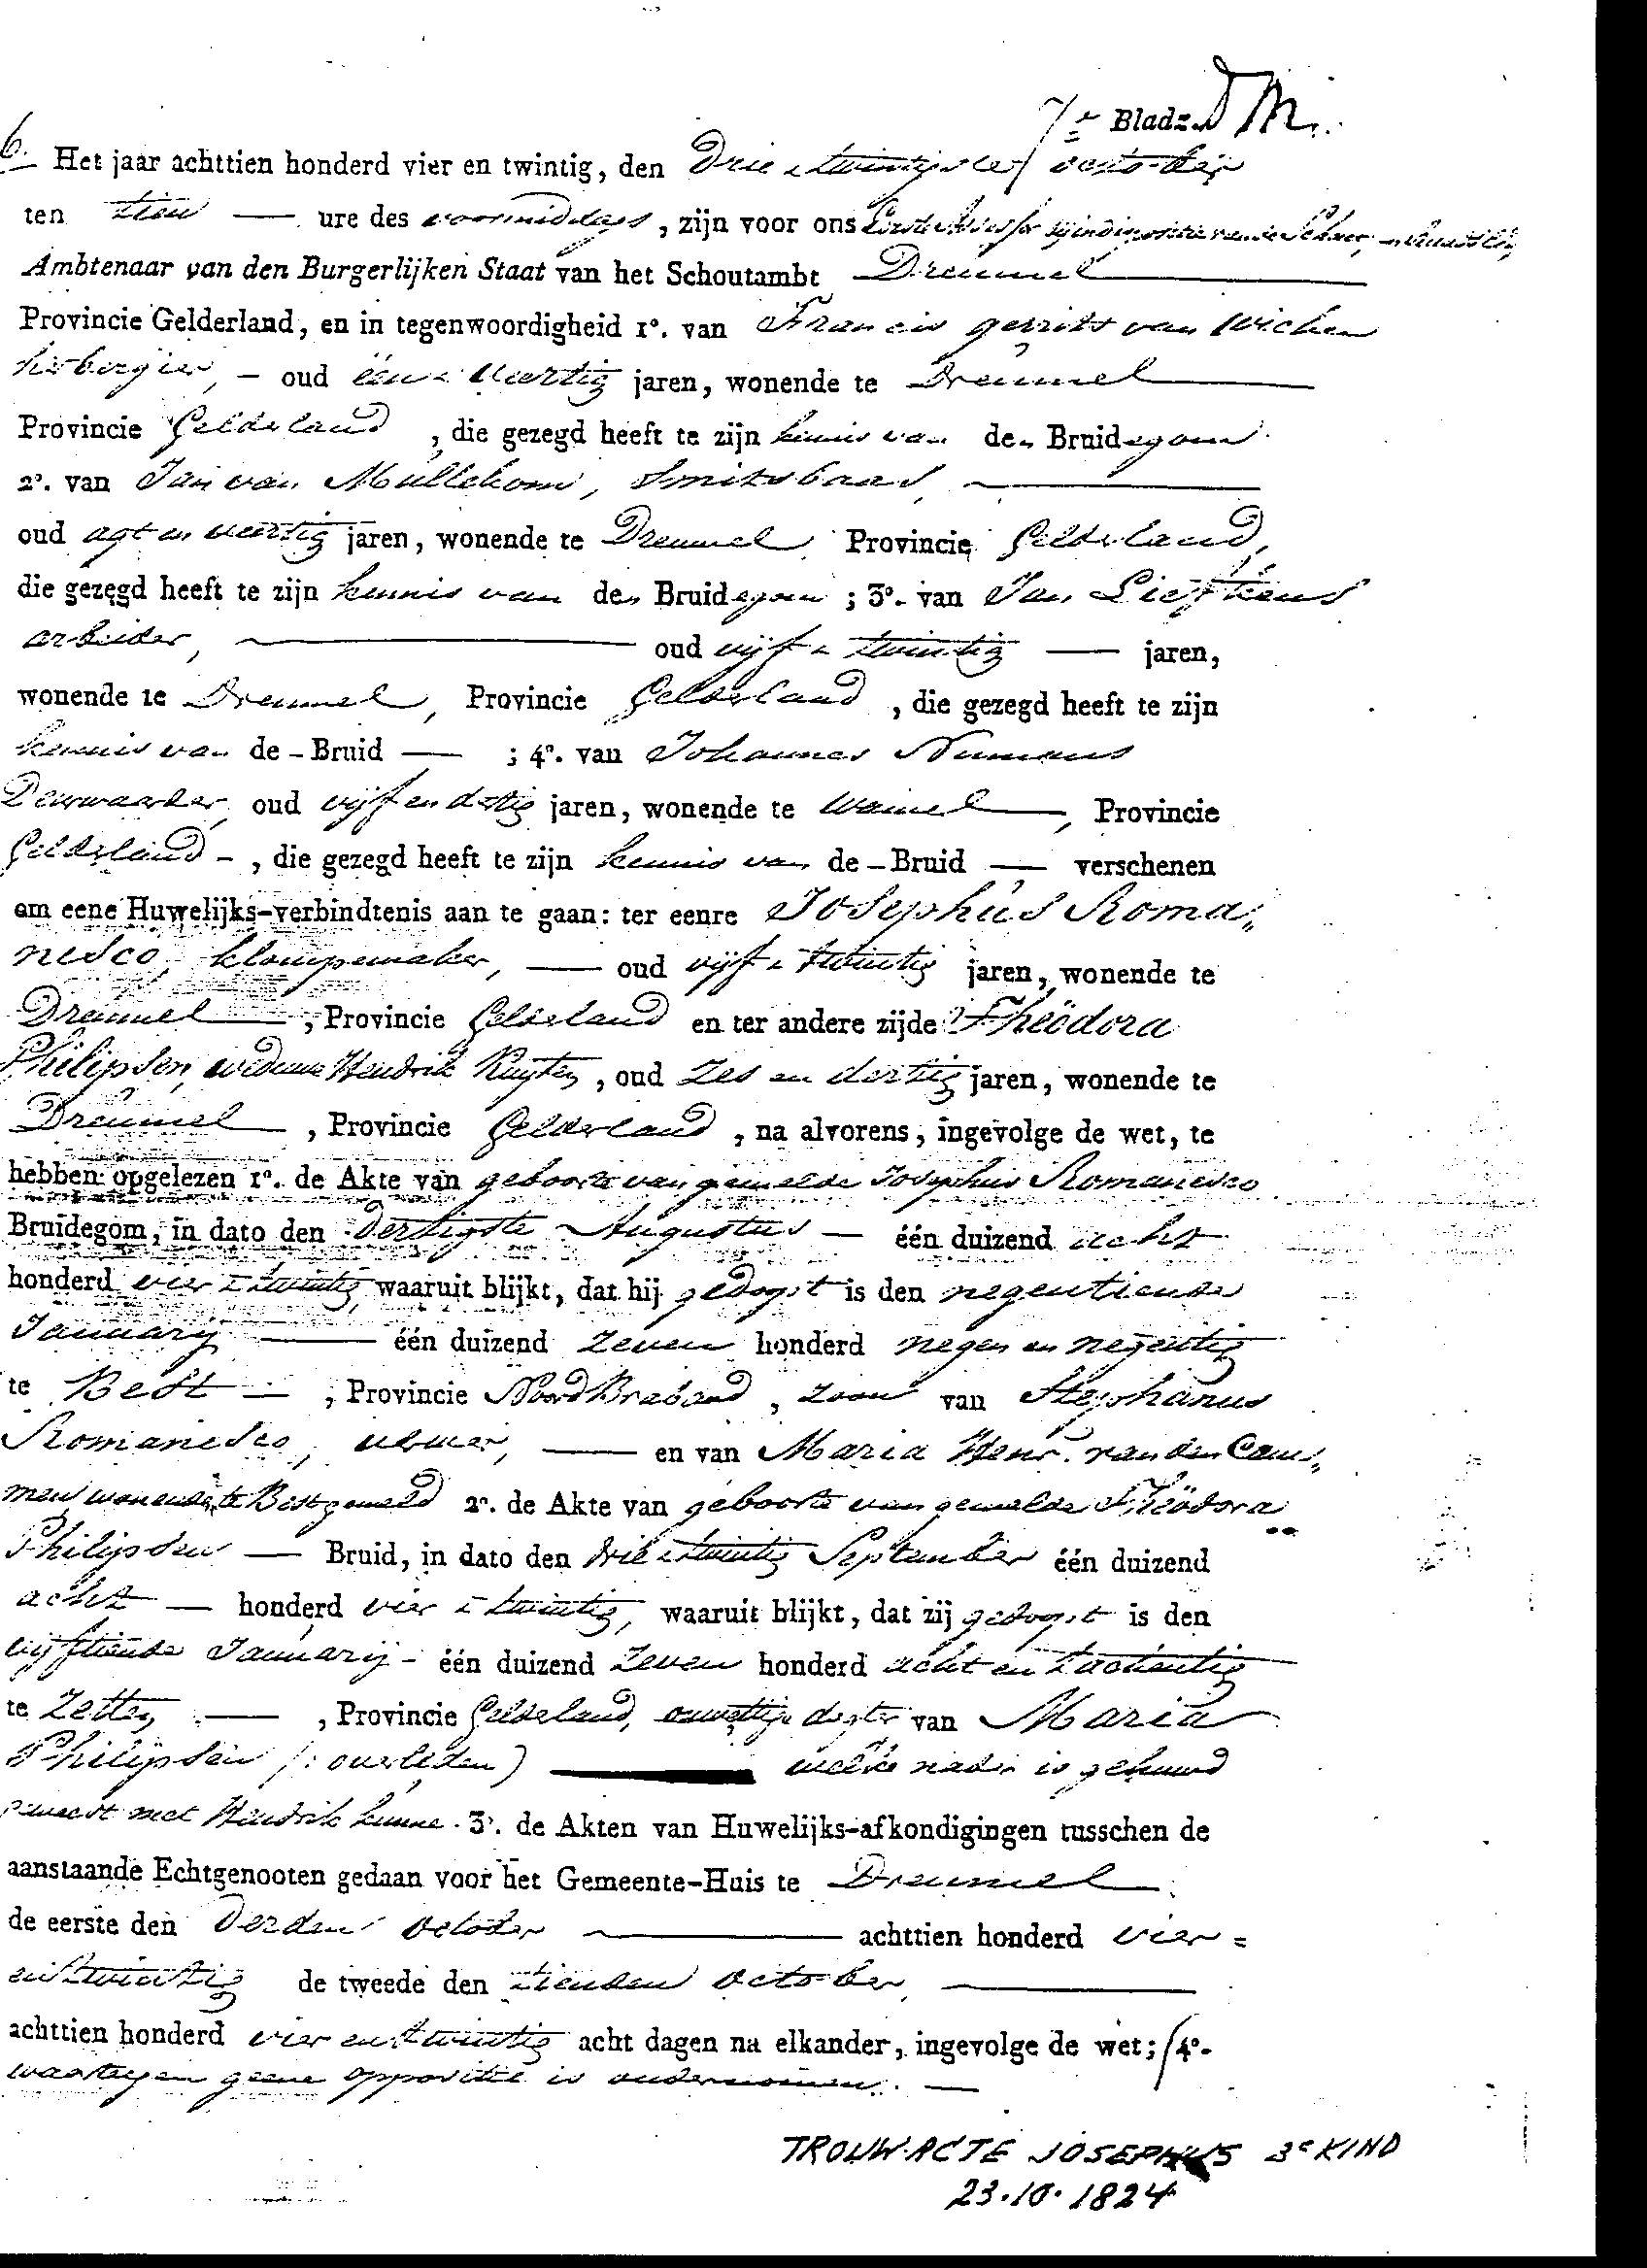 7e Bladz. DM.
6. Het jaar achttien honderd vier en twintig, den Drie & twintigste october
ten tien — ure des voormiddags, zijn voor ons Eerste Assessor bij indispositie van de Schout,
Ambtenaar van den Burgerlijken Staat van het Schoutambt Dreumel
Provincie Gelderland, en in tegenwoordigheid 1°. van Francis gerrits van Wichen
herbergier, — oud een & veertig jaren, wonende te Dreumel
Provincie Gelderland, die gezegd heeft te zijn kennis van den Bruidegom
2°. van Jan van Mullekom, Smitsbaas,
oud agt en veertig jaren, wonende te Dreumel Provincie Gelderland,
die gezegd heeft te zijn kennis van den Bruidegom; 3°. van Jan Liefkens
arbeider, — oud vijf & twintig — jaren,
wonende te Dreumel, Provincie Gelderland, die gezegd heeft te zijn
kennis van de - Bruid — ; 4°. van Johannes Numans
Deurwaarder, oud vijf en dertig jaren, wonende te Wamel —, Provincie
Gelderland -, die gezegd heeft te zijn kennis van de - Bruid — verschenen
om eene Huwelijks-verbindtenis aan te gaan: ter eenre Josephus Roma„
nesco, klompemaker, — oud vijf & twintig jaren, wonende te
Dreumel —, Provincie Gelderland en ter andere zijde Theodora
Philipsen, weduwe Hendrik Ruyten, oud Zes en dertig jaren, wonende te
Dreumel —, Provincie Gelderland, na alvorens, ingevolge de wet, te
hebben opgelezen 1°. de Akte van geboorte van gemelde Josephus Romanesco
Bruidegom, in dato den dertigste Augustus — één duizend acht
honderd vier & twintig, waaruit blijkt, dat hij gedoopt is den negentiende
Januarij — één duizend zeven honderd negen en negentig
te Best —, Provincie Noord Braband, zoon van Stephanus
Romanesco, — en van Maria Henr. van den Cam„
men wonende te Best gemeld 2°. de Akte van geboorte van gemelde Theodora
Philipsen — Bruid, in dato den drie & twintig September één duizend
acht — honderd vier & twintig, waaruit blijkt, dat zij gedoopt is den
vijftiende Januarij — één duizend Zeven honderd acht en tachentig
te Zetten —, Provincie Gelderland, onwettige dogter van Maria
Philipsen (: overleden) — welke nader is gehuwd
geweest met Hendrik 3°. de Akten van Huwelijks-afkondigingen tusschen de
aanstaande Echtgenooten gedaan voor het Gemeente-Huis te Dreumel
de eerste den Derden october — achttien honderd vier =
en twintig de tweede den tienden october,
achttien honderd vier en twintig acht dagen na elkander, ingevolge de wet; (4°.
waartegen geene oppositie is ondernomen. —
TROUW-ACTE JOSEPHUS 3e KIND
23.10.1824